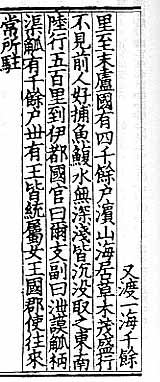 又渡一海千餘
里至末盧國有四千餘戶濱山海居草木茂盛行
不見前人好捕魚鰒水無深淺皆沉没取之東南
陸行五百里到伊都國官曰爾支副曰泄謨觚柄
渠觚有千餘戶丗有王皆統屬女王國郡使往來
常所駐